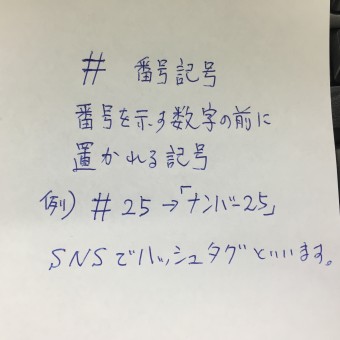 # 番号記号
番号を示す数字の前に
置かれる記号
例) # 25→「ナンバー25」
SNSでハッシュタグといいます。